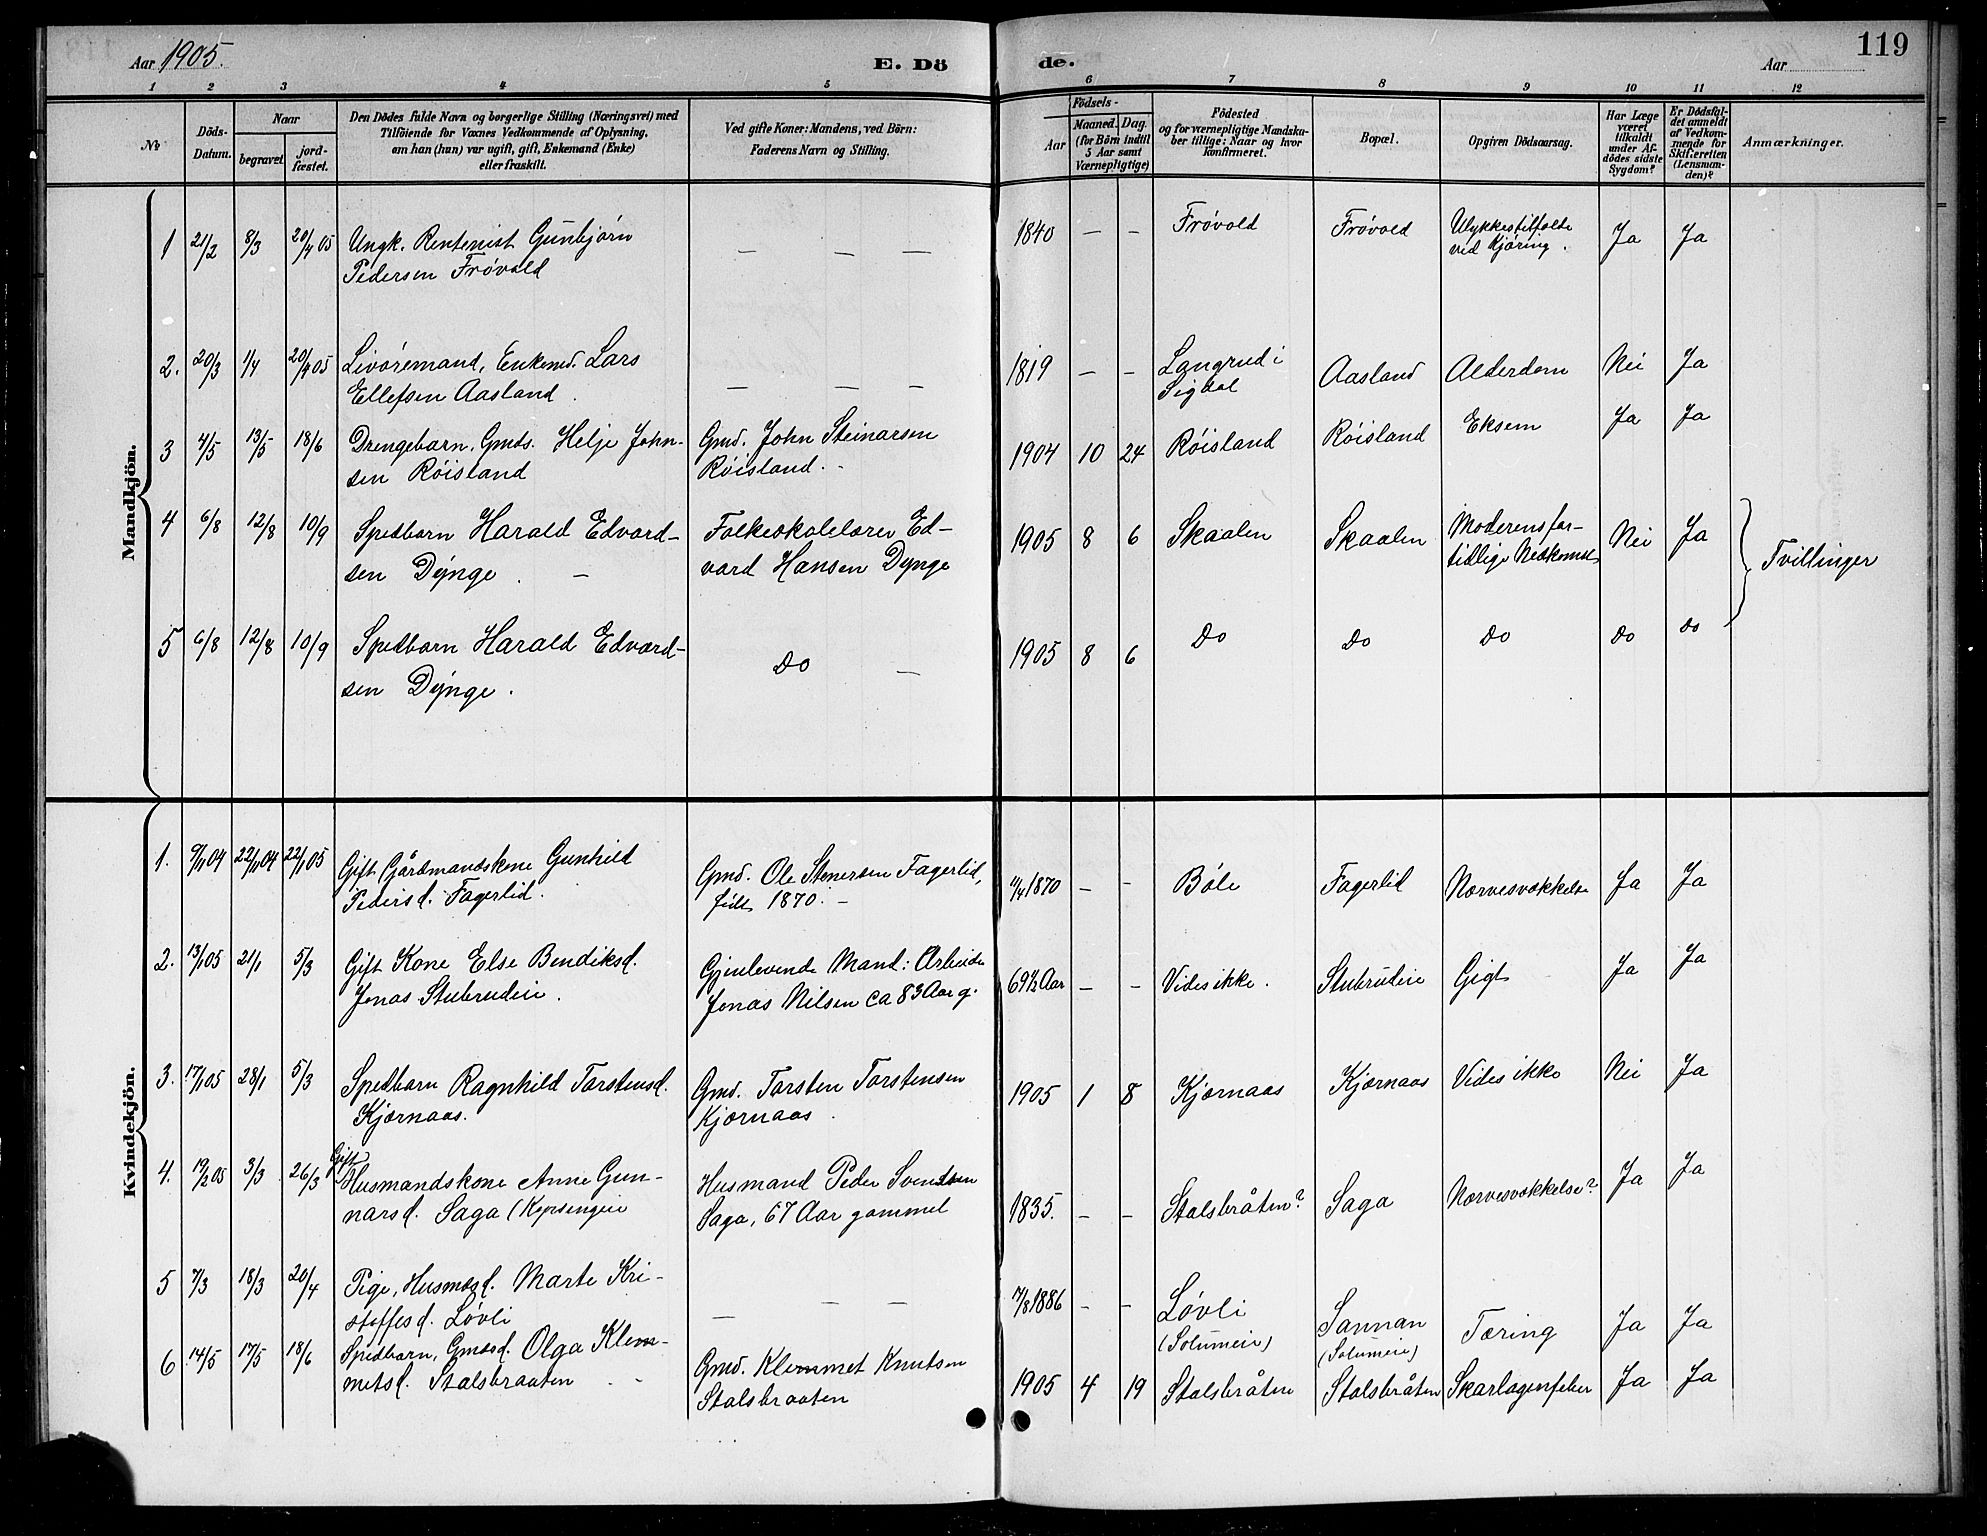 Aar 1905.
E. Dö
de.
Aar
119
1 2 3 4 5 6 7 8 9 10 11 12
No
Döds-Datum.
Naar
begravet
jord-fæstet.
Den Dödes fulde Navn og borgerlige Stilling (Næringsvei) med
Tilföiende for Voxnes Vedkommende af Oplysning,
om han (hun) var ugift, gift, Enkemand (Enke)
eller fraskilt.
Ved gifte Koner: Mandens, ved Börn:
Faderens Navn og Stilling.
Födsels-
Aar
Maaned. Dag.
(for Börn indtil
5 Aar samt
Værnepligtige)
Födested
og for værnepligtige Mandsku-
ber tillige: Naar og hvor
konfirmeret.
Bopæl.
Opgiven Dödsaarsag.
Har Læge
været
tilkaldt
under Af-
dödes sidste
Sygdom?
Er Dödsfal-
det anmeldt
af Vedkom-
mende for
Skifteretten
(Lensman-
den)?
Anmærkninger.
Mandkjön.
1 21/2 8/3 20/4 05 Ungk. Rentenist Gunbjørn
Pedersen Frövold
— — —
1840 — — Frövold Frövold Ulykkestilfolde
ved Kjöring. Ja Ja
2. 20/3 1/4 20/4 05 Livöremand, Enkemd. Lars
Ellefsen Aasland.
— — —
1819 — — Langrud i
Sigdal Aasland Alderdom Nei Ja
3 4/5 13/5 18/6 Drengebarn, Gmds. Helje John-
sen Röisland
Gmd. John Steinarsen
Röisland. -
1904 10 24 Röisland Röisland Eksem Ja Ja
4 6/8 12/8 10/9 Spedbarn Harald Edvard-
sen Dynge. —
Folkeskolelærer Ed-
vard Hansen Dynge
1905 8 6 Skaalen Skaalen Moderens for-
tidlige Nedkomst Nei Ja
Tvillinger
5 6/8 12/8 10/9 Spedbarn Harald Edvard-
sen Dynge.
Do —
1905 8 6 Do Do Do Do Do
Kvindekjön.
1. 9/11 04 22/11 04 22/1 05 Gift Gårdmandskone Gunhild
Pedersd. Fagerlid.
Gmd. Ole Stenersen Fagerlid,
født 1870. -
11/4 1870 — — Böle Fagerlid Nervesvækkelse Ja Ja
2. 13/1 05 21/1 5/3 Gift Kone Else Bendiksd.
Jonas Stubrudeie.
Gjenlevende Mand: Arbeider
Jonas Nilsen ca 83 Aar g.
69 1/2 Aar — — Vides ikke. Stubrudeie Gigt Ja Ja
3. 17/1 05 28/1 5/3 Spedbarn Ragnhild Torstensd.
Kjærnaas.
Gmd. Torsten Torstensen
Kjærnaas.
1905 1 8 Kjærnaas Kjærnaas Vides ikke Nei Ja
4. 19/2 05 3/3 26/3 Gift
Husmandskone Anne Gun-
narsd. Saga
Husmand Peder Svendsen
Saga, 67 Aar gammel
1835. — — Stalsbråten? Saga Nervesvækkelse? Ja Ja
5 7/3 18/3 20/4 Pige, Husmdsd. Marte Kri-
stoffesd. Lövli
— — —
17/8 1886 — — Lövli
(Solumeie) Sannan
(Solumeie) Tæring Ja Ja
6 14/5 17/5 18/6 Spedbarn, Gmdsd. Olga Klem-
metsd. Stalsbraaten
Gmd. Klemmet Knutsen
Stalsbraaten
1905 4 19 Stalsbråten Stalsbråten Skarlagensfeber Ja Ja